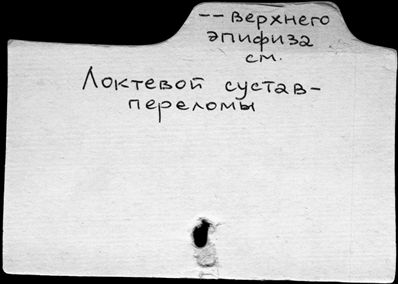 -- верхнего
эпифиза
см.
Локтевой сустав-
переломы